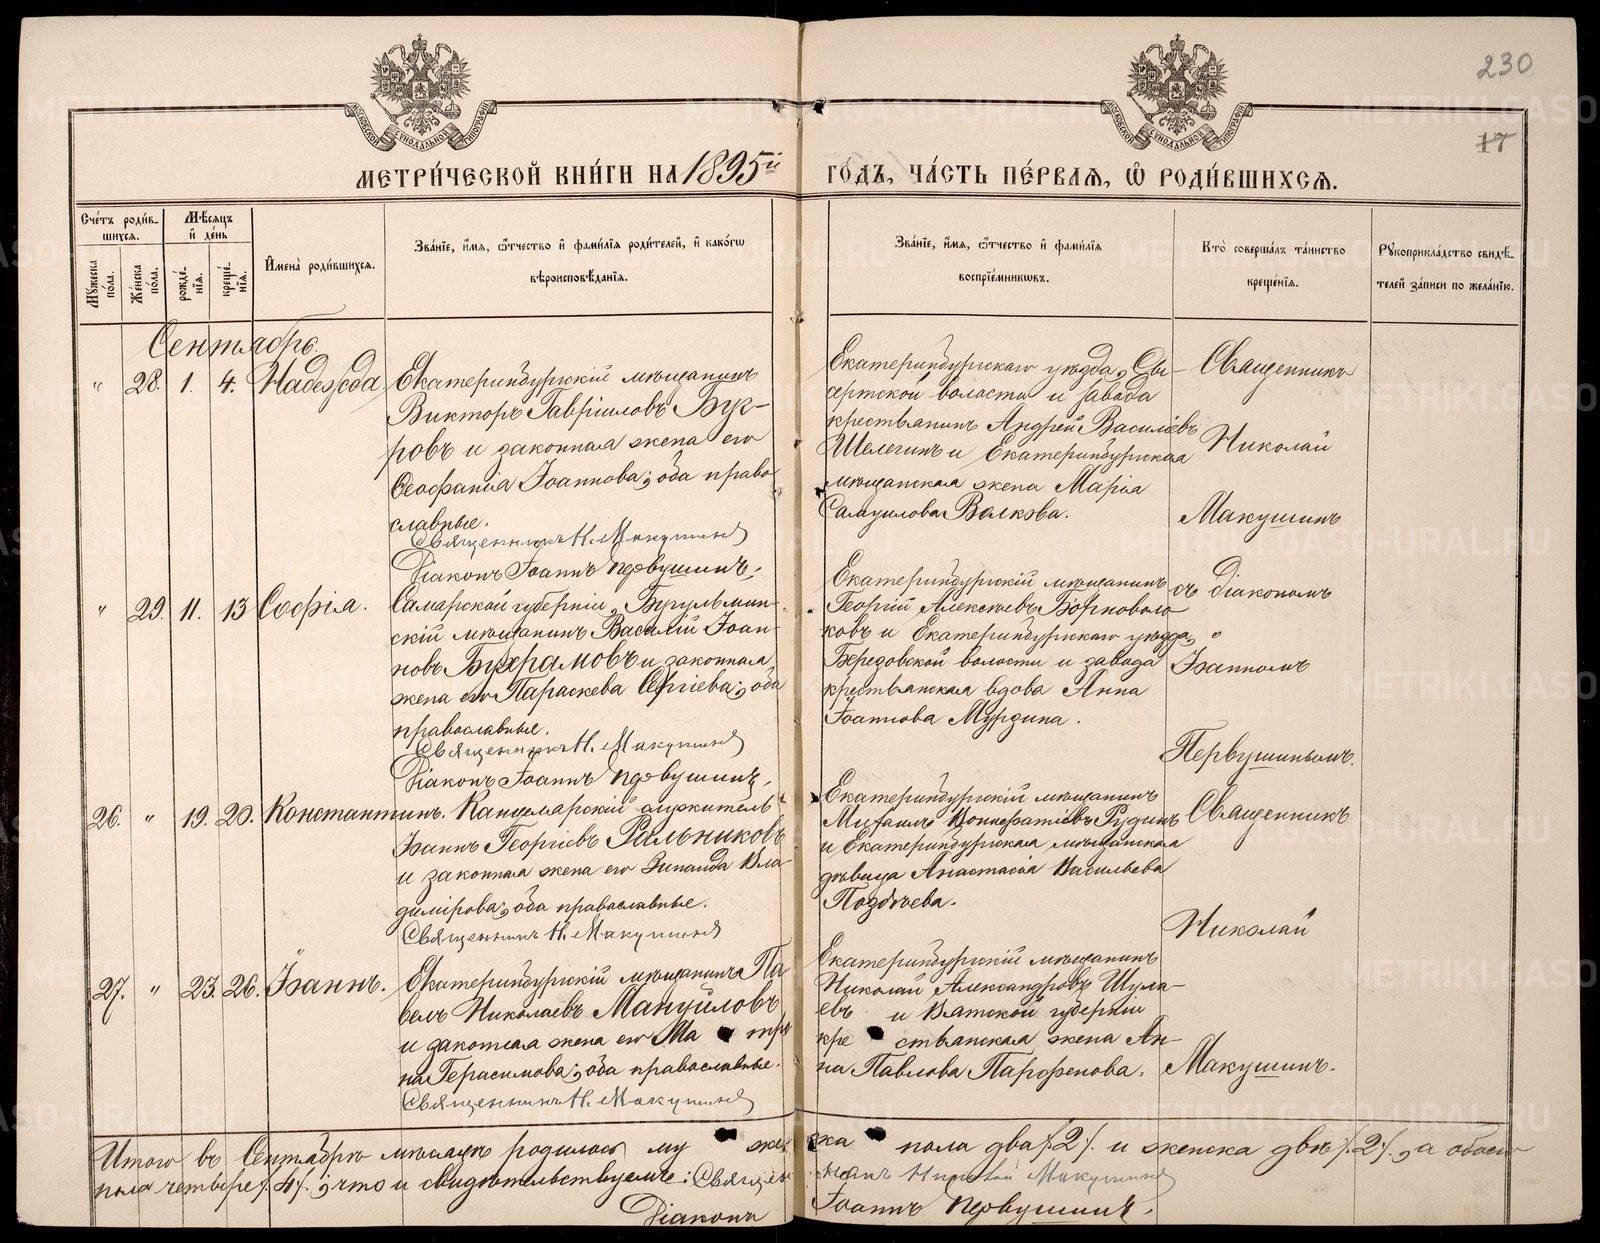 230
17
МЕТРИ́ЧЕСКОЙ КНИ́ГИ НА 1895й ГОДЪ, ЧА́СТЬ ПЕ́РВАЯ, Ѡ РОДИ́ВШИХСЯ.
Сче́тъ роди́в-
шихся.
Мѣсяцъ
и де́нь
Мꙋ́жеска по́ла.
Же́нска по́ла.
рожде́-
нїя.
креще́-
нїя.
И҆мена̀ роди́вшихся.
Зва́нїе, и҆́мя, ѻ҆́тчество и҆ фами́лїя роди́телей, и҆ како́гѡ
вѣроисповѣ́данїя.
Зва́нїе, и҆́мя, ѻ҆́тчество и҆ фами́лїя
воспрїе́мниковъ.
Кто̀ соверша́лъ та́инство
креще́нїя.
Рꙋкоприкла́дство свидѣ́-
телей за́писи по жела́нїю.
Сентябрь.
" 28. 1. 4. Надежда
Екатеринбургскій мѣщанинъ
Викторъ Гавріиловъ Бук-
ровъ и законная жена его
Ѳеофанія Іоаннова; оба право-
славные.
Священникъ Н. Макушинъ
Діаконъ Іоаннъ Первушинъ.
Екатеринбургскаго уѣзда, Сы-
сертской волости и завода
крестьянинъ Андрей Васильевъ
Шелегинъ и Екатеринбургская
мѣщанская жена Марія
Самуилова Волкова.
Священникъ
Николай
Макушинъ
" 29. 11. 13 Софія.
Самарской губерніи, Бугульмин-
скій мѣщанинъ Василій Іоан-
новъ Бухрамовъ и законная
жена его Параскева Сергіева; оба
православные.
Священникъ Н. Макушинъ
Діаконъ Іоаннъ Первушинъ.
Екатеринбургскій мѣщанинъ
Георгій Алексѣевъ Борноволо-
ковъ и Екатеринбургскаго уѣзда,
Березовской волости и завода
крестьянская вдова Анна
Іоаннова Мурзина.
съ Діакономъ
"
Іоанномъ
Первушинымъ.
26. " 19. 20. Константинъ.
Канцелярскій служитель
Іоаннъ Георгіевъ Рольниковъ
и законная жена его Зинаида Вла-
димірова; оба православные.
Священникъ Н. Макушинъ
Екатеринбургскій мѣщанинъ
Михаилъ Воннератіевъ Рудинъ
и Екатеринбургская мѣщанская
дѣвица Анастасія Васильева
Поздѣева.
Священникъ
Николай
Макушинъ.
27. " 23. 26. Іоаннъ.
Екатеринбургскій мѣщанинъ Па-
велъ Николаевъ Мануйловъ
и законная жена его Ма тро
на Герасимова; оба православные.
Священникъ Н. Макушинъ
Екатеринбургскій мѣщанинъ
Николай Александровъ Шула-
евъ и Вятской губерніи
кре стьянская жена Ан-
на Павлова Парфенова.
Итого въ Сентябрѣ мѣсяцѣ родилось му жеска пола два /.2./ и женска двѣ /.2./., а обоего
пола четыре /.4./., что и свидѣтельствуемъ: Священникъ Николай Макушинъ
Діаконъ Іоаннъ Первушинъ.